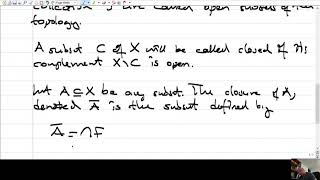 collection is are called open subsets of the
topology.
A subset C of X will be called closed if its
complement X\C is open.
Let A ⊆ X be any subset. The closure of A,
denoted Ā is the subset defined by
Ā = ∩F